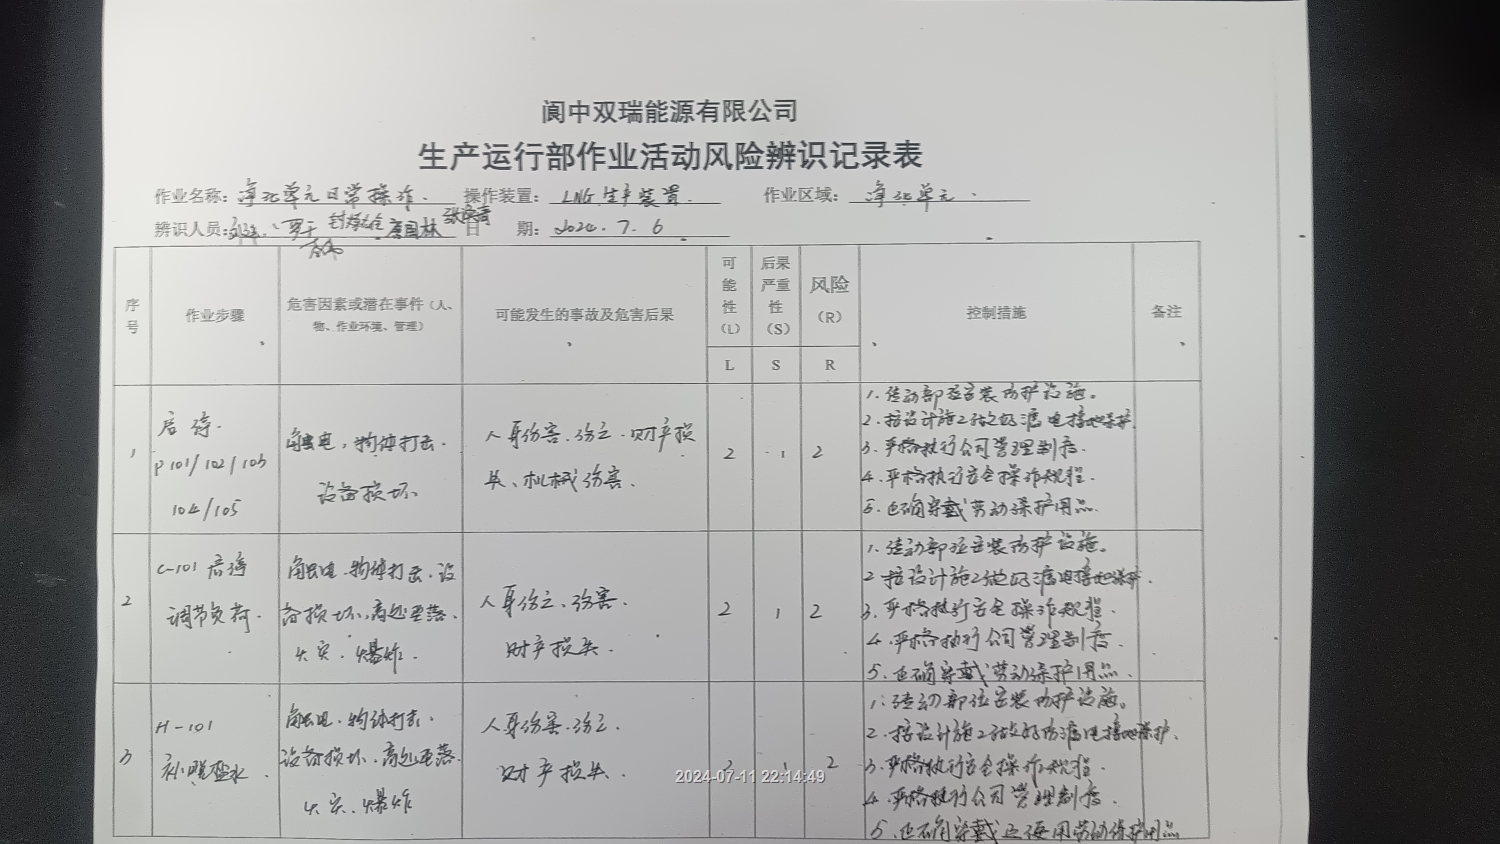 阆中双瑞能源有限公司
生产运行部作业活动风险辨识记录表
作业名称：净化单元日常操作. 操作装置：LNG生产装置. 作业区域：净化单元.
辨识人员： 罗干 唐国林 日 期：2024.7.6
序号 作业步骤 危害因素或潜在事件（人、物、作业环境、管理） 可能发生的事故及危害后果 可能性（L） 后果严重性（S） 风险（R） 控制措施 备注
L S R
1 启停. P101/102/103 104/105 触电，物体打击. 设备损坏 人身伤害.伤亡.财产损失、机械伤害. 2 1 2
1.传动部位安装防护设施。
2.按设计施工做好漏电接地保护.
3.严格执行公司管理制度.
4.严格执行安全操作规程.
5.正确穿戴劳动保护用品.
2 C-101启停 调节负荷. 触电.物体打击.设备损坏.高处坠落.火灾.爆炸. 人身伤亡、伤害.财产损失. 2 1 2
1.传动部位安装防护设施。
2 按设计施工做好漏电接地保护.
3.严格执行安全操作规程.
4.严格执行公司管理制度.
5.正确穿戴劳动保护用品.
3 H-101 补脱盐水. 触电.物体打击.设备损坏.高处坠落 火灾.爆炸 人身伤害.伤亡.财产损失. 2 1 2
1.传动部位安装防护设施。
2.按设计施工做好防漏电接地保护.
3.严格执行安全操作规程.
4.严格执行公司管理制度.
5.正确穿戴正确使用劳动保护用品
2024-07-11 22:14:49